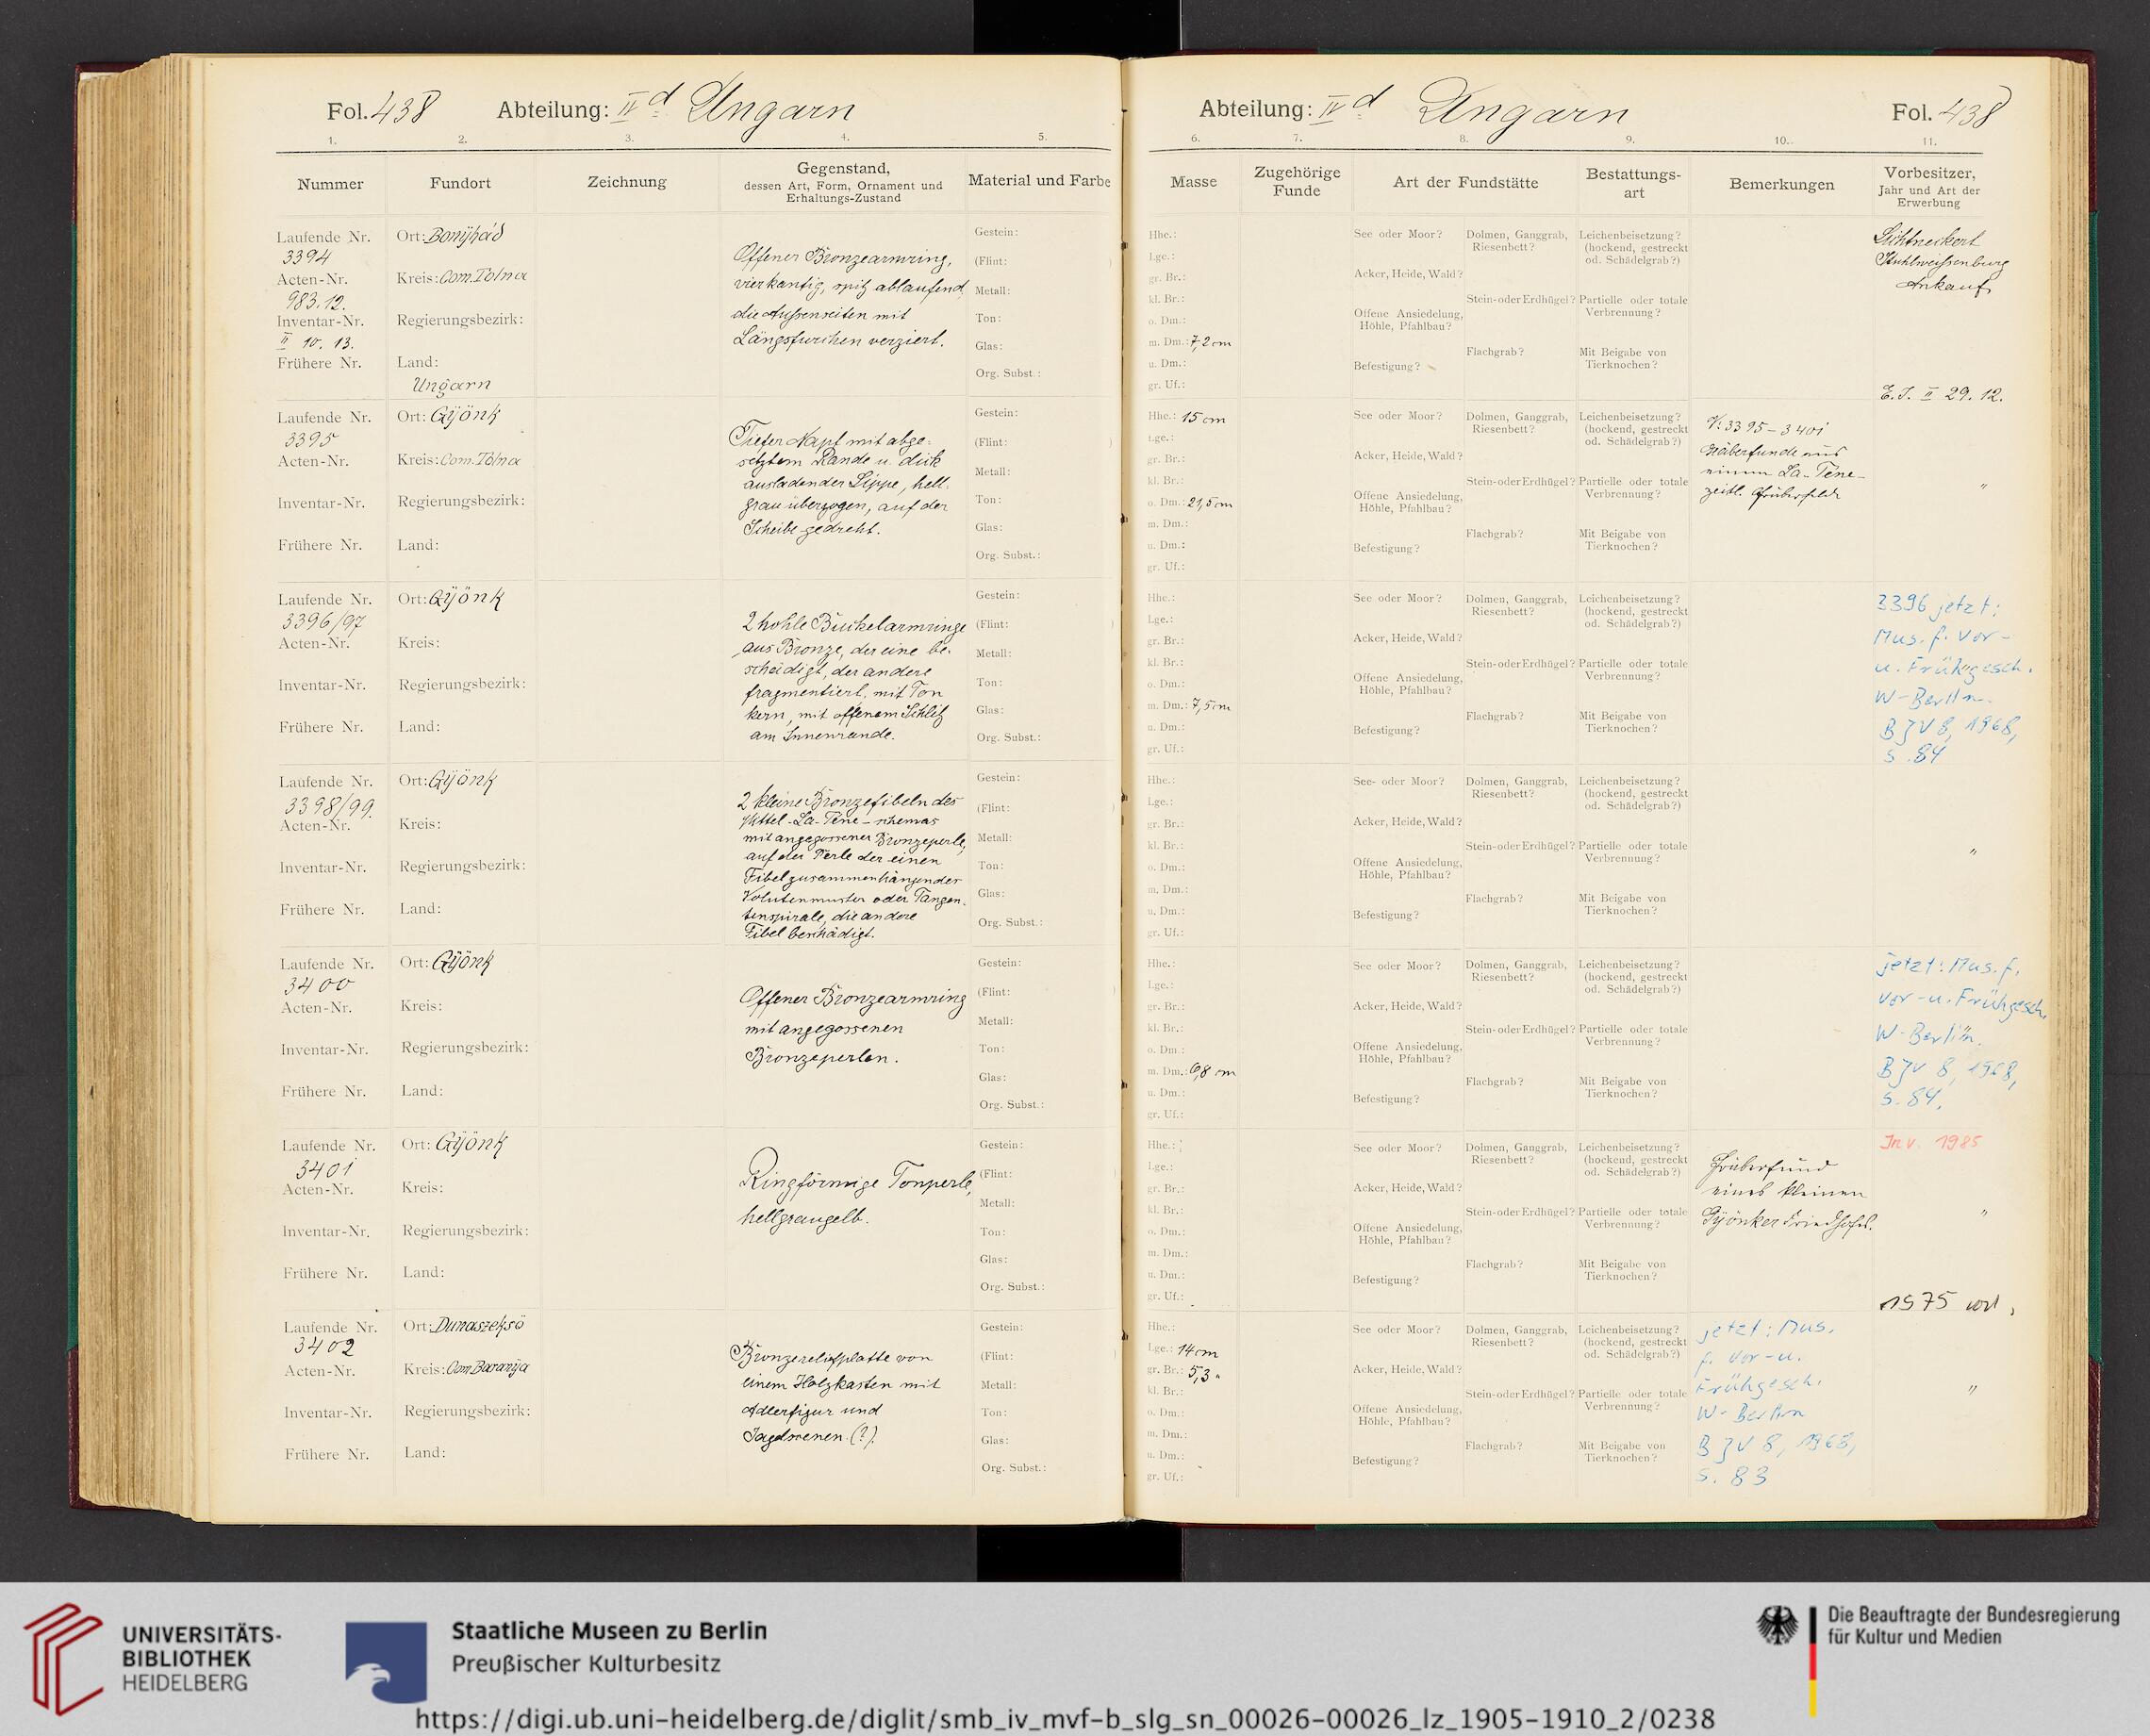 Fol. 438 Abteilung: IV d Ungarn
1. 2. 3. 4. 5.
Nummer Fundort Zeichnung Gegenstand, dessen Art, Form, Ornament und Erhaltungs-Zustand Material und Farbe
Laufende Nr. 3394
Acten-Nr. 983.12.
Inventar-Nr. II 10. 13.
Frühere Nr.
Ort: Bonyhád
Kreis: Com. Tolna
Regierungsbezirk:
Land: Ungarn
Offener Bronzearmring,
vierkantig, spitz ablaufend,
die Aussenseiten mit
Längsfurchen verziert.
Gestein:
(Flint: )
Metall:
Ton:
Glas:
Org. Subst.:
Laufende Nr. 3395
Acten-Nr.
Inventar-Nr.
Frühere Nr.
Ort: Gyönk
Kreis: Com. Tolna
Regierungsbezirk:
Land:
Tiefer Napf mit abge-
setztem Rande u. dick
ausladender Lippe, hell-
grau überzogen, auf der
Scheibe gedreht.
Gestein:
(Flint: )
Metall:
Ton:
Glas:
Org. Subst.:
Laufende Nr. 3396/97
Acten-Nr.
Inventar-Nr.
Frühere Nr.
Ort: Gyönk
Kreis:
Regierungsbezirk:
Land:
2 hohle Buckelarmringe
aus Bronze, der eine be-
schädigt, der andere
fragmentiert, mit Ton
kern, mit offenem Schlitz
am Innenrande.
Gestein:
(Flint: )
Metall:
Ton:
Glas:
Org. Subst.:
Laufende Nr. 3398/99.
Acten-Nr.
Inventar-Nr.
Frühere Nr.
Ort: Gyönk
Kreis:
Regierungsbezirk:
Land:
2 kleine Bronzefibeln des
Mittel-La-Tène-schemas
mit angegossener Bronzeperle,
auf der Perle der einen
Fibel zusammenhängender
Volutenmuster oder Tangen-
tenspirale, die andere
Fibel beschädigt.
Gestein:
(Flint:
Metall:
Ton:
Glas:
Org. Subst.:
Laufende Nr. 3400
Acten-Nr.
Inventar-Nr.
Frühere Nr.
Ort: Gyönk
Kreis:
Regierungsbezirk:
Land:
Offener Bronzearmring
mit angegossenen
Bronzeperlen.
Gestein:
(Flint: )
Metall:
Ton:
Glas:
Org. Subst.:
Laufende Nr. 3401
Acten-Nr.
Inventar-Nr.
Frühere Nr.
Ort: Gyönk
Kreis:
Regierungsbezirk:
Land:
Ringförmige Tonperle,
hellgraugelb.
Gestein:
(Flint: )
Metall:
Ton:
Glas:
Org. Subst.:
Laufende Nr. 3402
Acten-Nr.
Inventar-Nr.
Frühere Nr.
Ort: Dunaszekső
Kreis: Com Baranya
Regierungsbezirk:
Land:
Bronzereliefplatte von
einem Holzkasten mit
Adlerfigur und
Jagdscenen (?).
Gestein:
(Flint: )
Metall:
Ton:
Glas:
Org. Subst.:
Abteilung: IV d Ungarn Fol. 438
6. 7. 8. 9. 10. 11.
Masse Zugehörige Funde Art der Fundstätte Bestattungsart Bemerkungen Vorbesitzer, Jahr und Art der Erwerbung
Hhe.:
Lge.:
gr. Br.:
kl. Br.:
o. Dm.:
m. Dm.: 7,2 cm
u. Dm.:
gr. Uf.:
See oder Moor?
Acker, Heide, Wald?
Offene Ansiedelung, Höhle, Pfahlbau?
Befestigung?
Dolmen, Ganggrab, Riesenbett?
Stein- oder Erdhügel?
Flachgrab?
Leichenbeisetzung? (hockend, gestreckt od. Schädelgrab?)
Partielle oder totale Verbrennung?
Mit Beigabe von Tierknochen?
Lichtneckert
Stuhlweissenburg
Ankauf
E. J. II 29. 12.
Hhe.: 15 cm
Lge.:
gr. Br.:
kl. Br.:
o. Dm.: 21,5 cm
m. Dm.:
u. Dm.:
gr. Uf.:
See oder Moor?
Acker, Heide, Wald?
Offene Ansiedelung, Höhle, Pfahlbau?
Befestigung?
Dolmen, Ganggrab, Riesenbett?
Stein- oder Erdhügel?
Flachgrab?
Leichenbeisetzung? (hockend, gestreckt od. Schädelgrab?)
Partielle oder totale Verbrennung?
Mit Beigabe von Tierknochen?
3395-3401
Gräberfunde aus
einem La-Tène-
zeitl. Gräberfelde
"
Hhe.:
Lge.:
gr. Br.:
kl. Br.:
o. Dm.:
m. Dm.: 7,5 cm
u. Dm.:
gr. Uf.:
See oder Moor?
Acker, Heide, Wald?
Offene Ansiedelung, Höhle, Pfahlbau?
Befestigung?
Dolmen, Ganggrab, Riesenbett?
Stein- oder Erdhügel?
Flachgrab?
Leichenbeisetzung? (hockend, gestreckt od. Schädelgrab?)
Partielle oder totale Verbrennung?
Mit Beigabe von Tierknochen?
3396 jetzt:
Mus. f. Vor-
u. Frühgesch.
W-Berlin.
BJV 8, 1968,
S. 84
Hhe.:
Lge.:
gr. Br.:
kl. Br.:
o. Dm.:
m. Dm.:
u. Dm.:
gr. Uf.:
See- oder Moor?
Acker, Heide, Wald?
Offene Ansiedelung, Höhle, Pfahlbau?
Befestigung?
Dolmen, Ganggrab, Riesenbett?
Stein- oder Erdhügel?
Flachgrab?
Leichenbeisetzung? (hockend, gestreckt od. Schädelgrab?)
Partielle oder totale Verbrennung?
Mit Beigabe von Tierknochen?
"
Hhe.:
Lge.:
gr. Br.:
kl. Br.:
o. Dm.:
m. Dm.: 6,8 cm
u. Dm.:
gr. Uf.:
See oder Moor?
Acker, Heide, Wald?
Offene Ansiedelung, Höhle, Pfahlbau?
Befestigung?
Dolmen, Ganggrab, Riesenbett?
Stein- oder Erdhügel?
Flachgrab?
Leichenbeisetzung? (hockend, gestreckt od. Schädelgrab?)
Partielle oder totale Verbrennung?
Mit Beigabe von Tierknochen?
jetzt: Mus. f.
Vor-u. Frühgesch.
W-Berlin.
BJV 8, 1968,
S. 84.
Hhe.:
Lge.:
gr. Br.:
kl. Br.:
o. Dm.:
m. Dm.:
u. Dm.:
gr. Uf.:
See oder Moor?
Acker, Heide, Wald?
Offene Ansiedelung, Höhle, Pfahlbau?
Befestigung?
Dolmen, Ganggrab, Riesenbett?
Stein- oder Erdhügel?
Flachgrab?
Leichenbeisetzung? (hockend, gestreckt od. Schädelgrab?)
Partielle oder totale Verbrennung?
Mit Beigabe von Tierknochen?
Gräberfund
eines kleinen
Gyönker Friedhofes.
Inv. 1985
"
1975 vorl.
Hhe.:
Lge.: 14 cm
gr. Br.: 5,3 "
kl. Br.:
o. Dm.:
m. Dm.:
u. Dm.:
gr. Uf.:
See oder Moor?
Acker, Heide, Wald?
Offene Ansiedelung, Höhle, Pfahlbau?
Befestigung?
Dolmen, Ganggrab, Riesenbett?
Stein- oder Erdhügel?
Flachgrab?
Leichenbeisetzung? (hockend, gestreckt od. Schädelgrab?)
Partielle oder totale Verbrennung?
Mit Beigabe von Tierknochen?
jetzt: Mus.
f. Vor-u.
Frühgesch.
W-Berlin
BJV 8, 1968,
S. 83
"
UNIVERSITÄTS-
BIBLIOTHEK
HEIDELBERG
Staatliche Museen zu Berlin
Preußischer Kulturbesitz
Die Beauftragte der Bundesregierung
für Kultur und Medien
https://digi.ub.uni-heidelberg.de/diglit/smb_iv_mvf-b_slg_sn_00026-00026_lz_1905-1910_2/0238